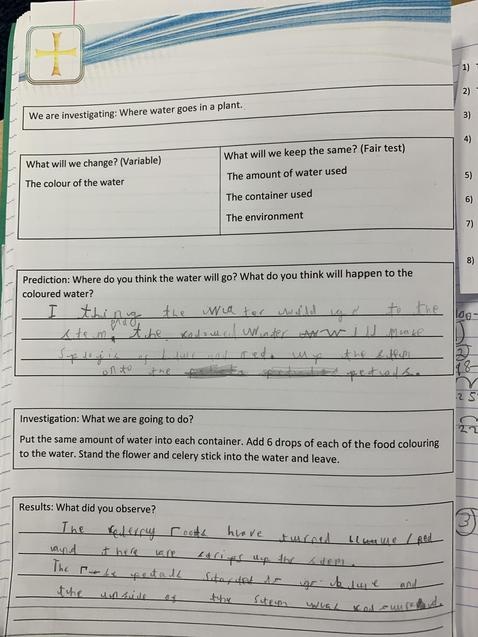 We are investigating: Where water goes in a plant.
What will we change? (Variable)
The colour of the water
What will we keep the same? (Fair test)
The amount of water used
The container used
The environment
Prediction: Where do you think the water will go? What do you think will happen to the
coloured water?
I thing the water would go to the
stem, and the
up the stem
onto the petrods.
Investigation: What we are going to do?
Put the same amount of water into each container. Add 6 drops of each of the food colouring
to the water. Stand the flower and celery stick into the water and leave.
Results: What did you observe?
The roots have turned red
and there are strips up the stem.
The petals started to go blue and
the inside of the stem was
1)
2)
3)
4)
5)
6)
7)
8)